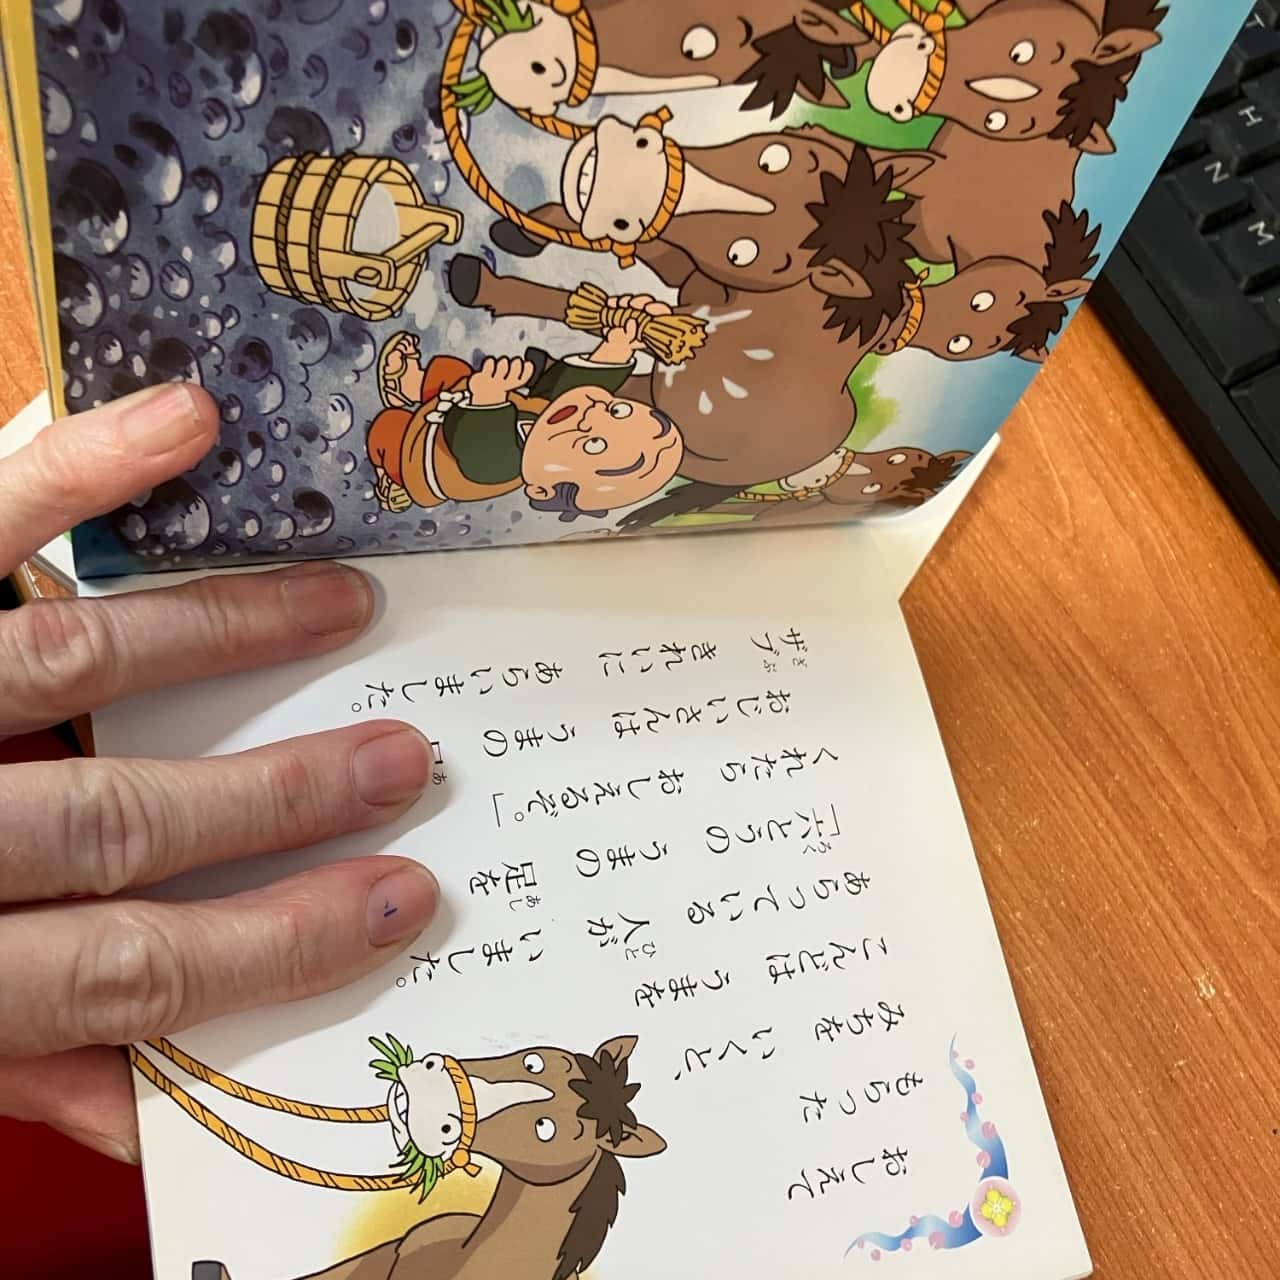 おしえて
もらった
みちを いくと、
こんどは うまを
あらっている 人が いました。
「六とうの うまの 足を
くれたら おしえるぞ。」
おじいさんは うまの
ザブ きれいに あらいました。
H
N
M